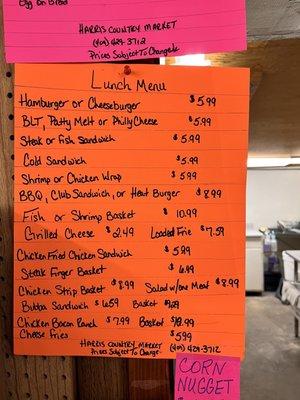 Egg on Bread
HARRIS COUNTRY MARKET
(409) 429-3712
Prices Subject To Change
Lunch Menu
Hamburger or Cheeseburger $5.99
BLT, Patty Melt or Philly Cheese $5.99
Steak or Fish Sandwich $5.99
Cold Sandwich $5.99
Shrimp or Chicken Wrap $5.99
BBQ, Club Sandwich, or Heart Burger $8.99
Fish or Shrimp Basket $10.99
Grilled Cheese $2.49 Loaded Frie $7.59
Chicken Fried Chicken Sandwich $5.89
Steak Finger Basket $6.99
Chicken Strip Basket $8.99 Salad w/one Meat $8.99
Bubba Sandwich $6.59 Basket
Chicken Bacon Ranch $7.99 Basket
Cheese Fries $5.99
HARRIS COUNTRY MARKET
Prices Subject To Change (409) 429-3712
CORN
NUGGET